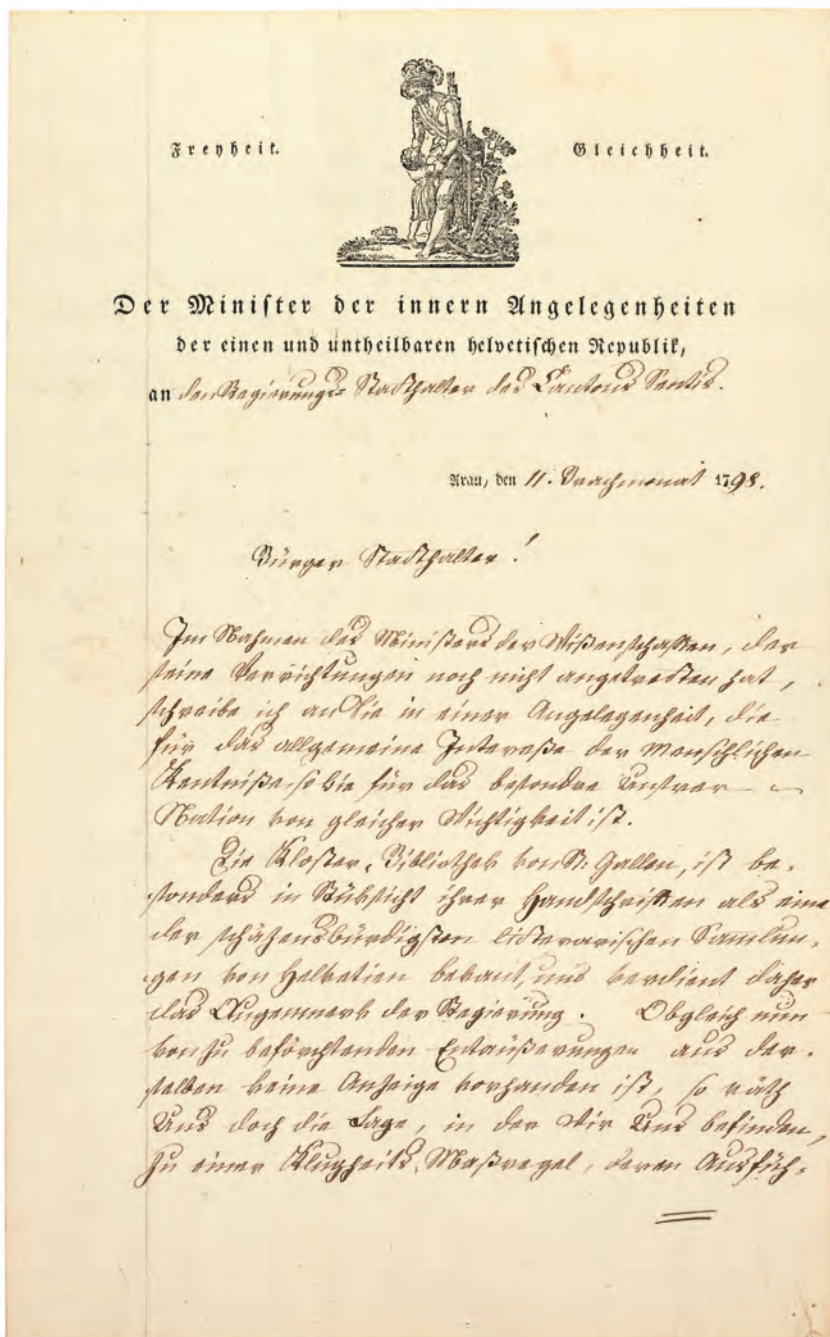 Freyheit.
Gleichheit.
Der Minister der innern Angelegenheiten
der einen und untheilbaren helvetischen Republik,
an den Regierungs-Stadthalter des Cantons Sentis.
Arau, den 11. Brachmonat 1798.
Bürger Stadthalter!
Im Nahmen des Ministers der Wißenschaften, der
seine Verrichtungen noch nicht angetretten hat,
schreibe ich an Sie in einer Angelegenheit, die
für das allgemeine Intereße der Menschlichen
Kentniße, so wie für das besondre Unsrer
Nation von gleicher Wichtigkeit ist.
Die Kloster-Bibliothek von St: Gallen, ist be-
sonders in Rüksicht ihrer Handschriften als eine
der schäzenswürdigsten litterarischen Samlun-
gen von Helvetien bekant, und verdient daher
das Augenmerk der Regierung. Obgleich nun
von zu beförchtenden Entäußerungen aus der-
selben keine Anzeige vorhanden ist, so räth
Uns doch die Lage, in der Wir Uns befinden,
zu einer Klugheits-Maßregel, deren Ausfüh-